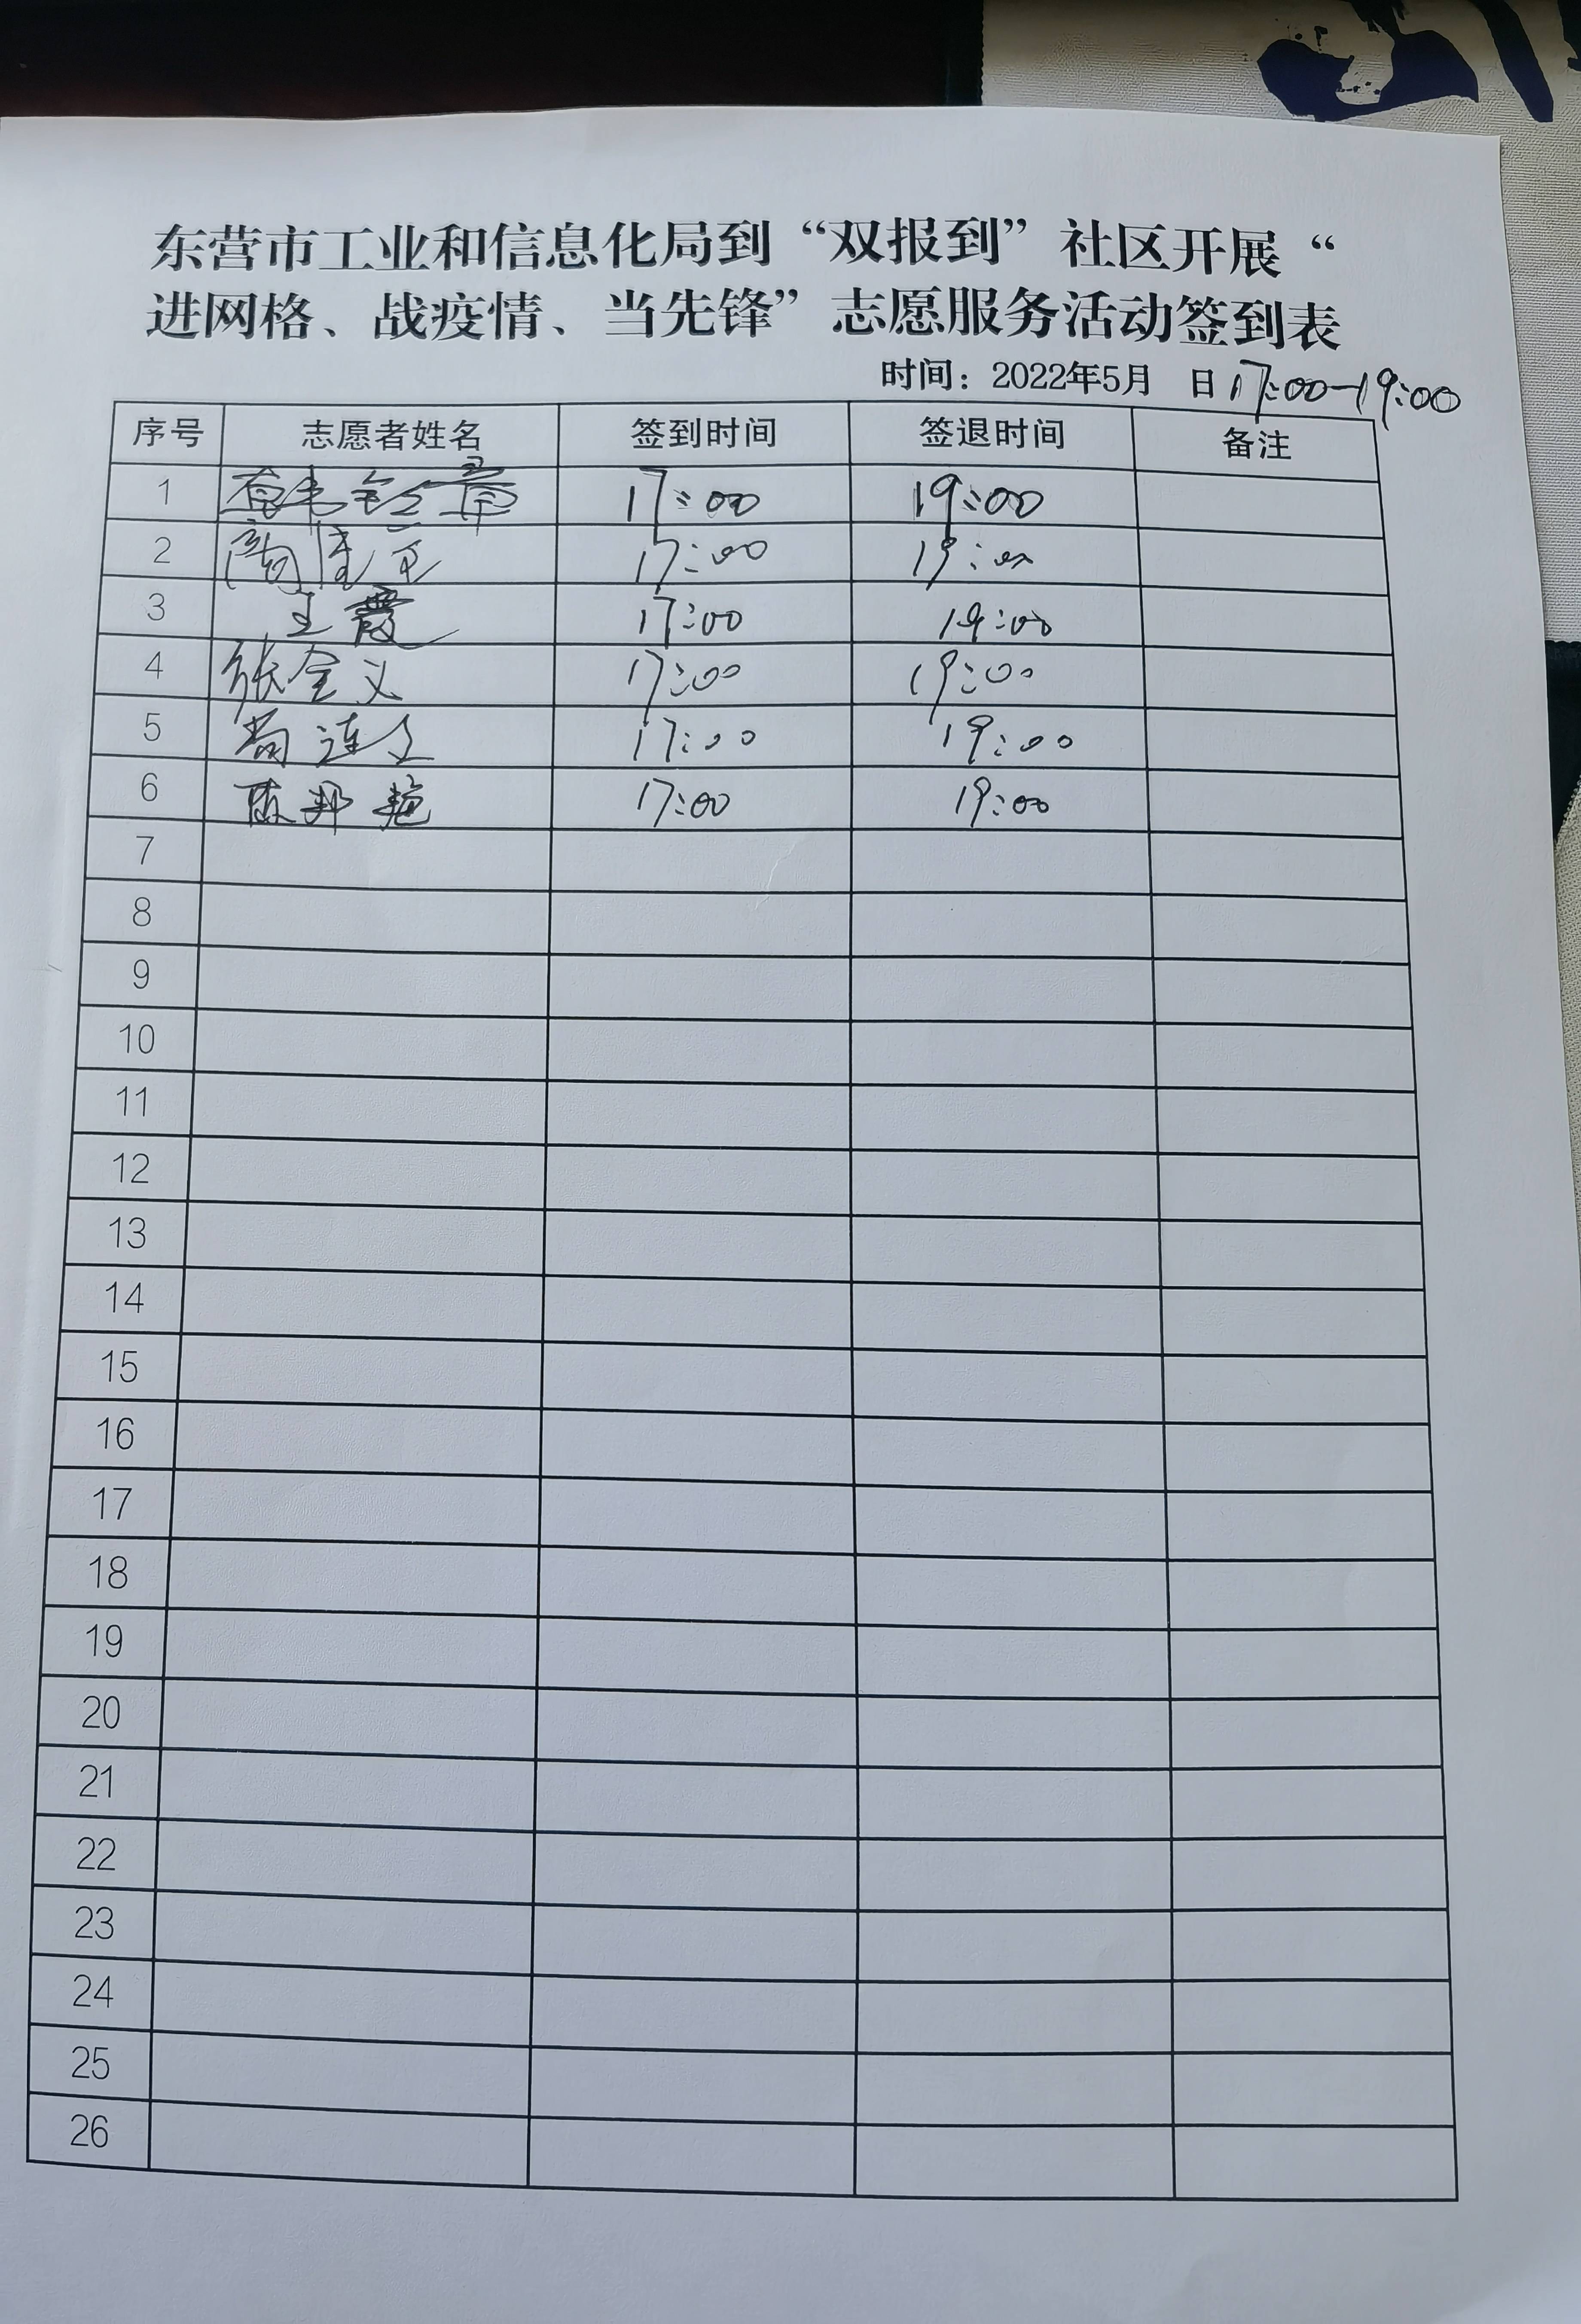 东营市工业和信息化局到“双报到”社区开展“
进网格、战疫情、当先锋”志愿服务活动签到表
时间：2022年5月 日 17:00-19:00
序号 志愿者姓名 签到时间 签退时间 备注
1 17:00 19:00
2 17:00 19:00
3 王霞 17:00 19:00
4 张全义 17:00 19:00
5 17:00 19:00
6 陈邦艳 17:00 19:00
7
8
9
10
11
12
13
14
15
16
17
18
19
20
21
22
23
24
25
26